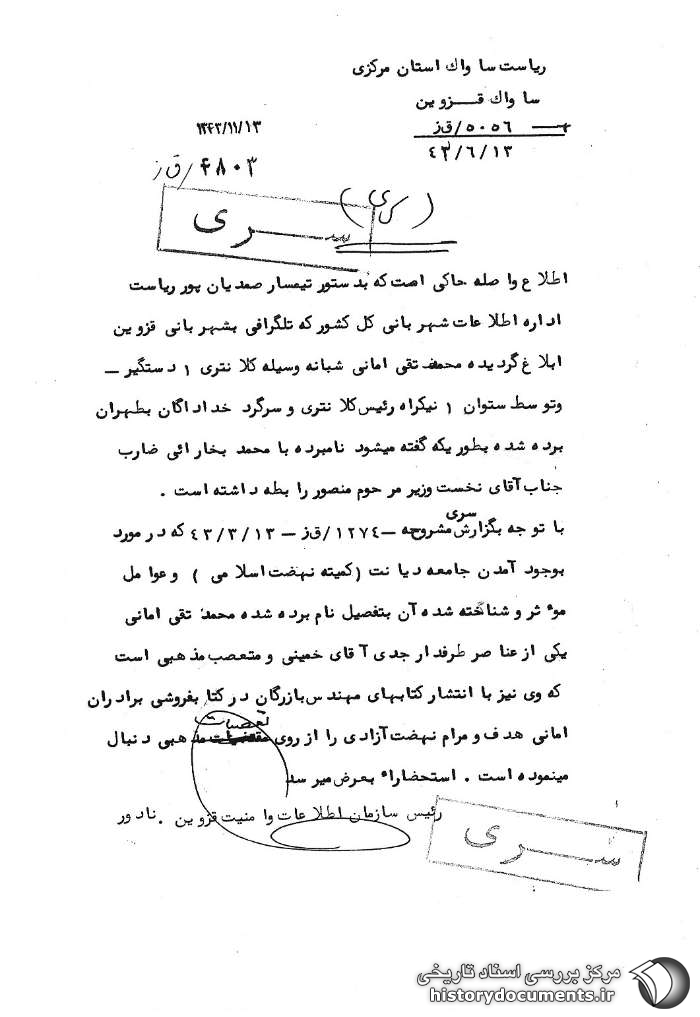 ریاست ساواک استان مرکزی
ساواک قزوین
۵۰۵۶/ق‌ز
۴۳/۶/۱۳
۱۳۴۳/۱۱/۱۳
۴۸۰۳/ق ز
سری
اطلاع واصله حاکی است که بدستور تیمسار صمدیان پور ریاست
اداره اطلاعات شهربانی کل کشور که تلگرافی بشهربانی قزوین
ابلاغ گردیده محمد تقی امانی شبانه وسیله کلانتری ۱ دستگیر –
وتوسط ستوان ۱ نیکراه رئیس کلانتری و سرگرد خدادادگان بطهران
برده شده بطوریکه گفته میشود نامبرده با محمد بخارائی ضارب
جناب آقای نخست وزیر مرحوم منصور رابطه داشته است .
سری
با توجه بگزارش مشروحه – ۱۲۷۴/ق‌ز – ۴۳/۳/۱۳ که در مورد
بوجود آمدن جامعه دیانت (کمیته نهضت اسلامی ) وعوامل
موءثر و شناخته شده آن بتفصیل نام برده شده محمد تقی امانی
یکی از عناصر طرفدار جدی آقای خمینی و متعصب مذهبی است
که وی نیز با انتشار کتابهای مهندس بازرگان در کتابفروشی برادران
تعصبات
امانی هدف و مرام نهضت آزادی را از روی مذهبی دنبال
مینموده است . استحضاراً بعرض میرسد
رئیس سازمان اطلاعات وامنیت قزوین . نادور
سری
مرکز بررسی اسناد تاریخی
historydocuments.ir